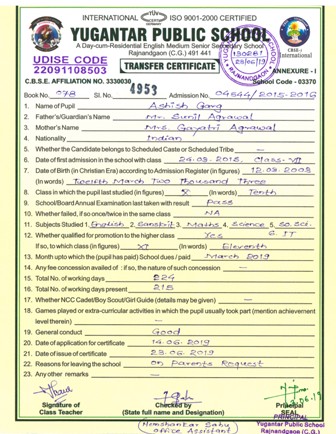 INTERNATIONAL ISO 9001-2000 CERTIFIED
YUGANTAR PUBLIC SCHOOL
A Day-cum-Residential English Medium Senior Secondary School
Rajnandgaon (C.G.) 491 441
CBSE-i
International
UDISE CODE
22091108503
TRANSFER CERTIFICATE
130261
28/06/19
RAJNANDGAON
ANNEXURE - I
C.B.S.E. AFFILIATION NO. 3330030
School Code - 03370
Book No. 078 Sl. No. 4953 Admission No. 04644/2015-2016
1. Name of Pupil Ashish Garg
2. Father's/Guardian's Name Mr. Sunil Agrawal
3. Mother's Name Mrs. Gayatri Agrawal
4. Nationality Indian
5. Whether the Candidate belongs to Scheduled Caste or Scheduled Tribe —
6. Date of first admission in the school with class 24.03.2015, Class-VII
7. Date of Birth (in Christian Era) according to Admission Register (in figures) 12.03.2003
(in words) Twelfth March Two Thousand Three
8. Class in which the pupil last studied (in figures) X (In words) Tenth
9. School/Board Annual Examination last taken with result Pass
10. Whether failed, if so once/twice in the same class NA
11. Subjects Studied 1. English 2. Sanskrit 3. Maths 4. Science 5. So. Sci.
6. IT
12. Whether qualified for promotion to the higher class Yes
If so, to which class (in figures) XI (In words) Eleventh
13. Month upto which the (pupil has paid) School dues / paid March 2019
14. Any fee concession availed of : if so, the nature of such concession —
15. Total No. of working days 224
16. Total No. of working days present 215
17. Whether NCC Cadet/Boy Scout/Girl Guide (details may be given) —
18. Games played or extra-curricular activities in which the pupil usually took part (mention achievement
level therein) —
19. General conduct Good
20. Date of application for certificate 14.06.2019
21. Date of issue of certificate 28.06.2019
22. Reasons for leaving the school on Parents Request
23. Any other remarks —
Signature of
Class Teacher
Checked by
(State full name and Designation)
Hemshankar Sahu
Office Assistant
Principal
SEAL
PRINCIPAL
Yugantar Public School
Rajnandgaon (C.G.)